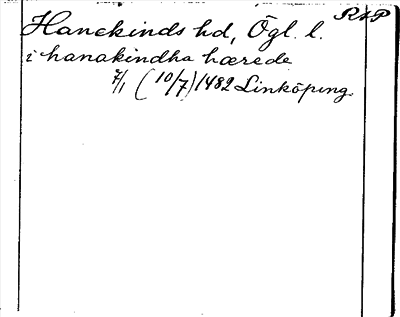 Hanekinds hd, Ögl. l. RAP
i hanakindha hærede
7/1 (10/7) 1482 Linköping.